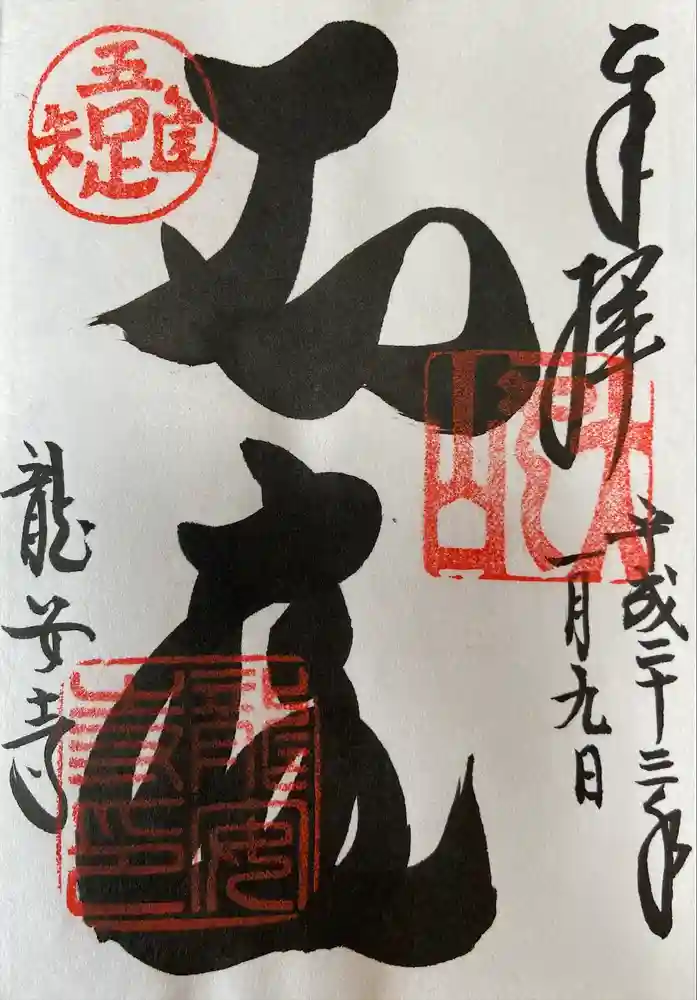 奉拝
平成二十三年
一月九日
石庭
龍安寺
吾唯足知
龍安寺印